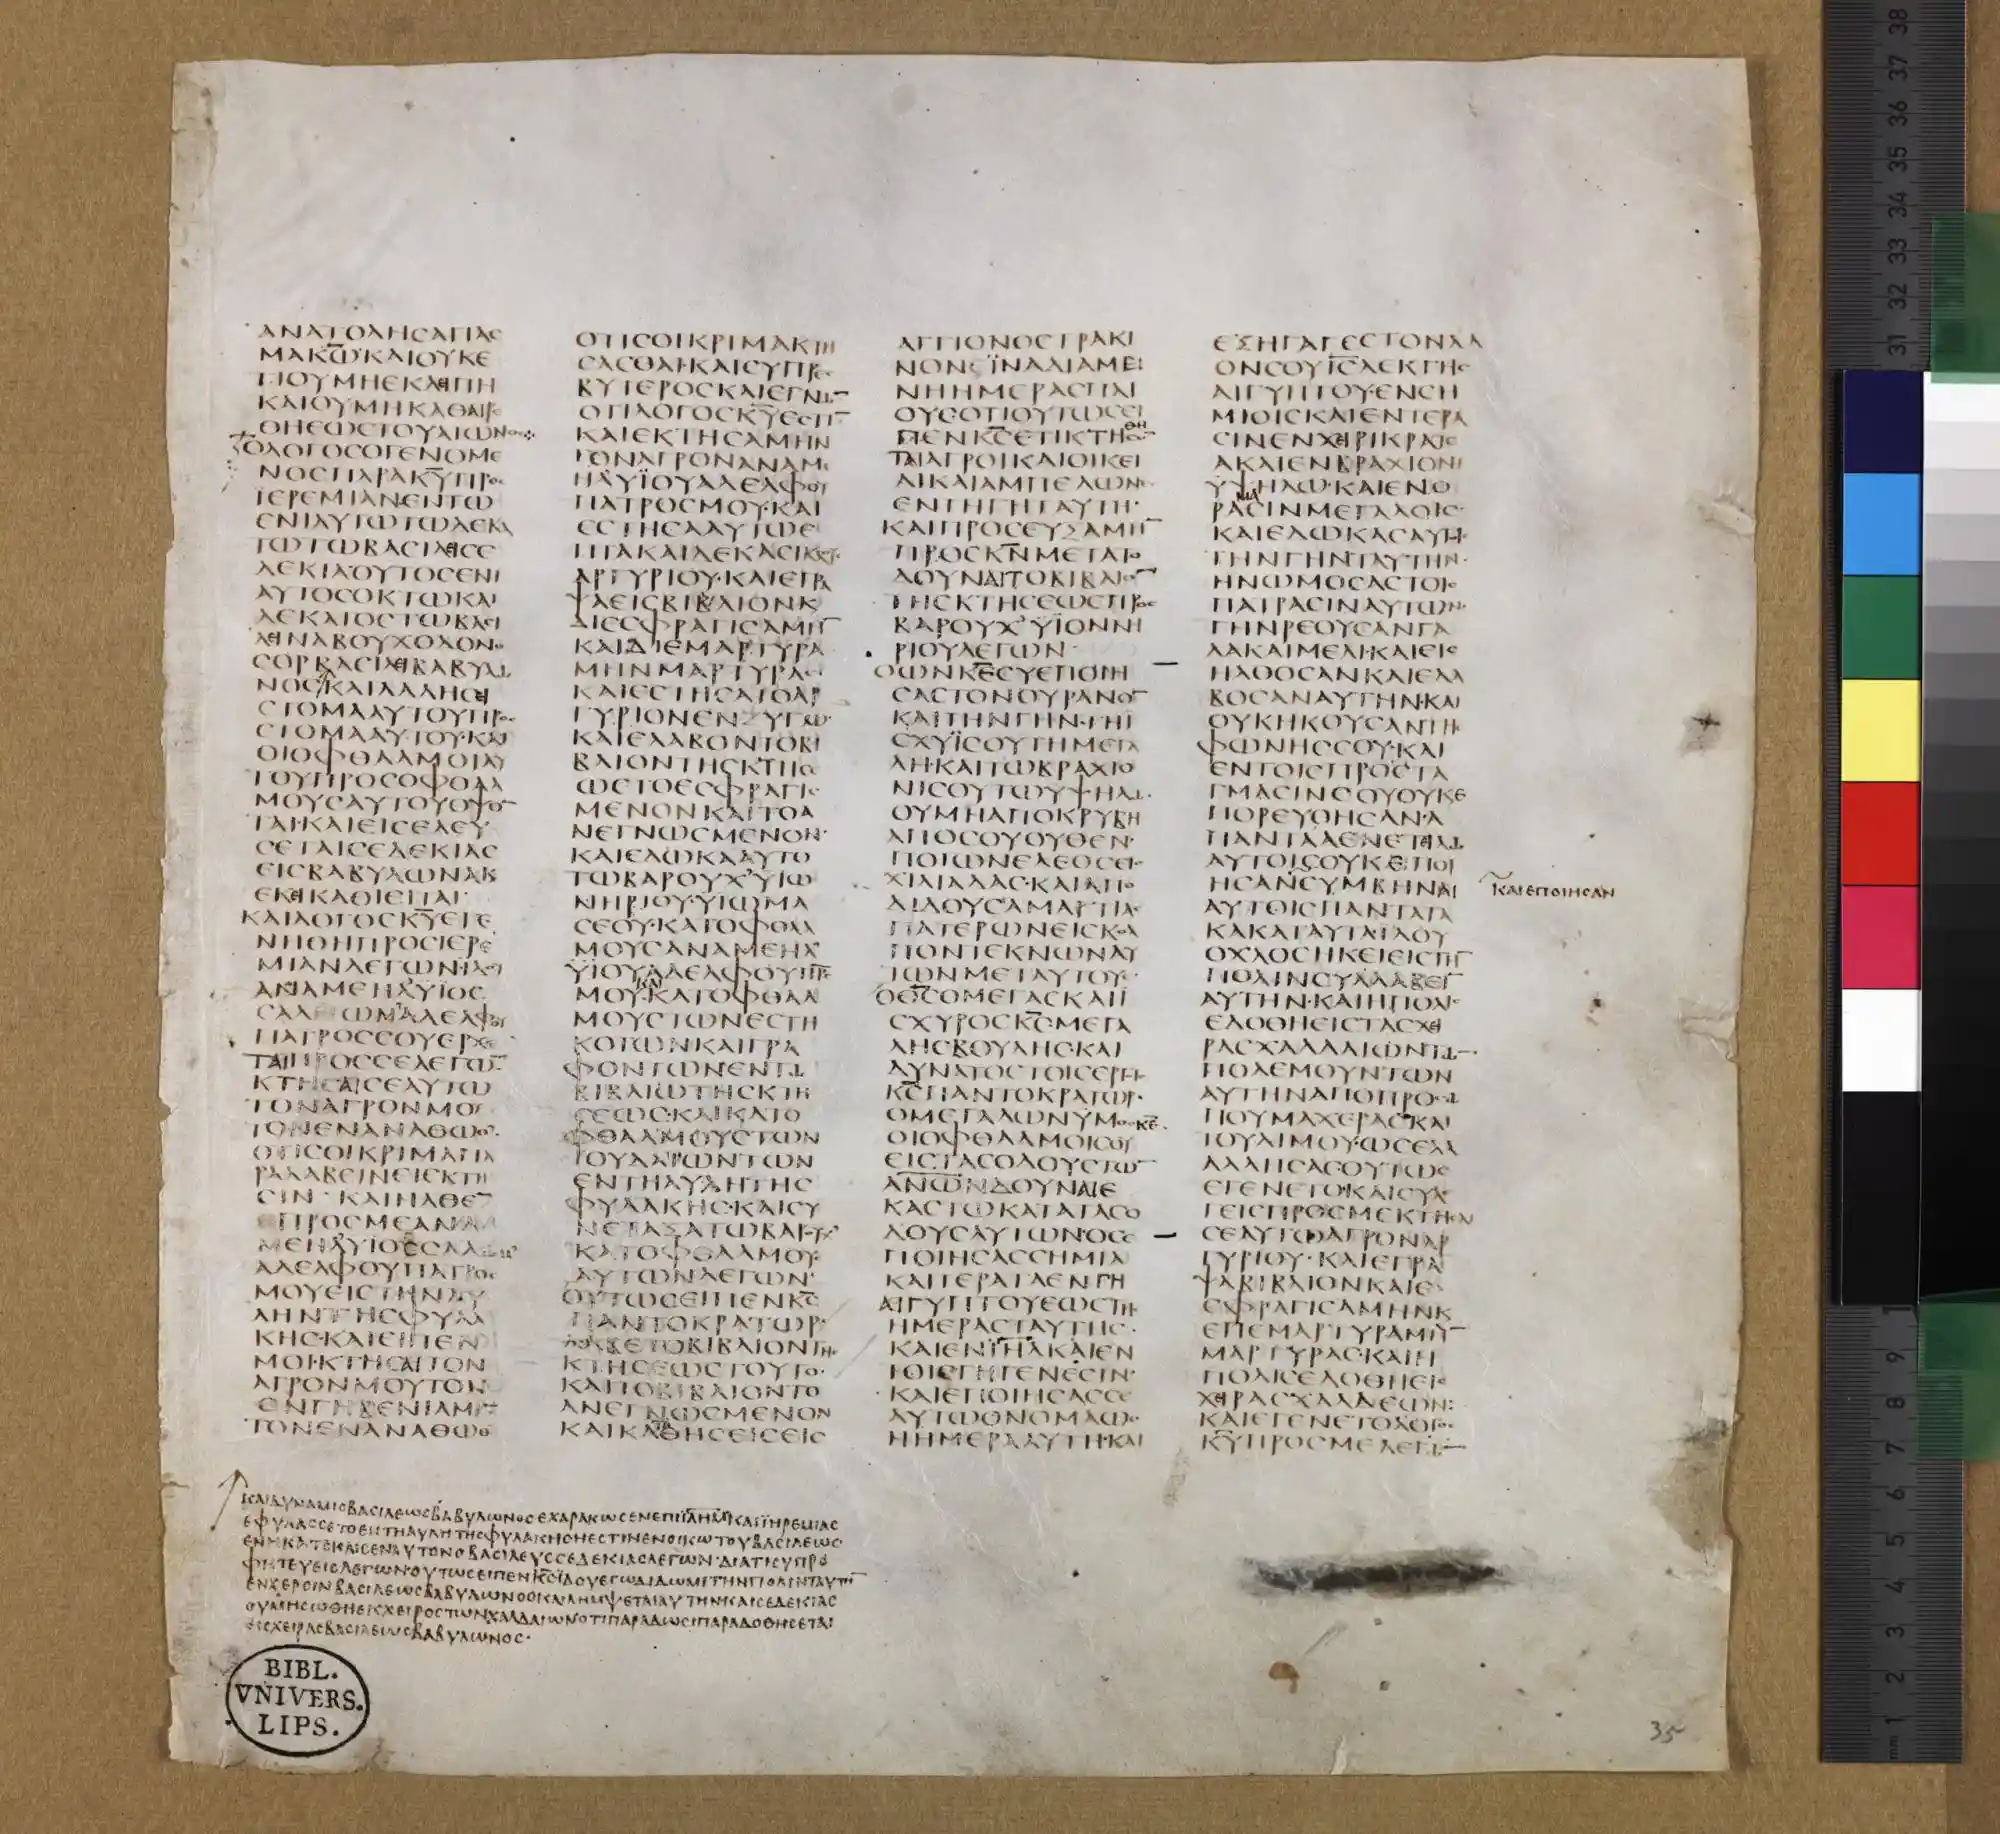 ΑΝΑΤΟΛΗΣΑΓΙΑΣ
ΜΑΚΩ ΚΑΙΟΥΚΕ
ΤΙΟΥΜΗΕΚΛΕΙΠΗ
ΚΑΙΟΥΜΗΚΑΘΑΙΡΕ
ΘΗΕΩΣΤΟΥΑΙΩΝΟΣ
ΟΛΟΓΟΣΟΓΕΝΟΜΕ
ΝΟΣΠΑΡΑΚΥΠΡΟΣ
ΪΕΡΕΜΙΑΝΕΝΤΩ
ΕΝΙΑΥΤΩΤΩΔΕΚΑ
ΤΩΤΩΒΑΣΙΛΕΙΣΕ
ΔΕΚΙΑΟΥΤΟΣΕΝΙ
ΑΥΤΟΣΟΚΤΩΚΑΙ
ΔΕΚΑΤΟΣΤΩΒΑΣΙ
ΛΕΙΝΑΒΟΥΧΟΔΟΝΟ
ΣΟΡΒΑΣΙΛΕΙΒΑΒΥΛΩ
ΝΟΣ ΚΑΙΛΑΛΗΣΕΙ
ΣΤΟΜΑΑΥΤΟΥΠΡΟΣ
ΣΤΟΜΑΑΥΤΟΥ ΚΑΙ
ΟΙΟΦΘΑΛΜΟΙΑΥ
ΤΟΥΠΡΟΣΟΦΘΑΛ
ΜΟΥΣΑΥΤΟΥΟΨΟΝ
ΤΑΙ ΚΑΙΕΙΣΕΛΕΥ
ΣΕΤΑΙΣΕΔΕΚΙΑΣ
ΕΙΣΒΑΒΥΛΩΝΑΚ
ΕΚΕΙΚΑΘΙΕΙΤΑΙ
ΚΑΙΛΟΓΟΣΚΥΕΓΕ
ΝΗΘΗΠΡΟΣΙΕΡΕ
ΜΙΑΝΛΕΓΩΝ ΙΔΟΥ
ΑΝΑΜΕΗΛΥΙΟΣ
ΣΑΛΩΜΑΔΕΛΦΟΥ
ΠΑΤΡΟΣΣΟΥΕΡΧΕ
ΤΑΙΠΡΟΣΣΕΛΕΓΩΝ
ΚΤΗΣΑΙΣΕΑΥΤΩ
ΤΟΝΑΓΡΟΝΜΟΥ
ΤΟΝΕΝΑΝΑΘΩΘ
ΟΤΙΣΟΙΚΡΙΜΑΠΑ
ΡΑΛΑΒΕΙΝΕΙΣΚΤΗ
ΣΙΝ ΚΑΙΗΛΘΕΝ
ΠΡΟΣΜΕΑΝΑ
ΜΕΗΛΥΙΟΣΣΑΛΩΜ
ΑΔΕΛΦΟΥΠΑΤΡΟΣ
ΜΟΥΕΙΣΤΗΝΑΥ
ΛΗΝΤΗΣΦΥΛΑ
ΚΗΣ ΚΑΙΕΙΠΕΝ
ΜΟΙ ΚΤΗΣΑΙΤΟΝ
ΑΓΡΟΝΜΟΥΤΟΝ
ΕΝΓΗΒΕΝΙΑΜΙΝ
ΤΟΝΕΝΑΝΑΘΩΘ
ΟΤΙΣΟΙΚΡΙΜΑΚΤΗ
ΣΑΣΘΑΙ ΚΑΙΣΥΠΡΕΣ
ΒΥΤΕΡΟΣΚΑΙΕΓΝΩΝ
ΟΤΙΛΟΓΟΣΚΥΕΣΤΙΝ
ΚΑΙΕΚΤΗΣΑΜΗΝ
ΤΟΝΑΓΡΟΝΑΝΑΜΕ
ΗΛΥΪΟΥΑΔΕΛΦΟΥ
ΠΑΤΡΟΣΜΟΥ ΚΑΙ
ΕΣΤΗΣΑΑΥΤΩΕ
ΠΤΑΚΑΙΔΕΚΑΣΙΚΛΟΥΣ
ΑΡΓΥΡΙΟΥ ΚΑΙΕΓΡΑ
ΨΑΕΙΣΒΙΒΛΙΟΝΚ
ΑΙΕΣΦΡΑΓΙΣΑΜΗΝ
ΚΑΙΔΙΕΜΑΡΤΥΡΑ
ΜΗΝΜΑΡΤΥΡΑΣ
ΚΑΙΕΣΤΗΣΑΤΟΑΡ
ΓΥΡΙΟΝΕΝΖΥΓΩ
ΚΑΙΕΛΑΒΟΝΤΟΒΙ
ΒΛΙΟΝΤΗΣΚΤΗΣΕ
ΩΣΤΟΕΣΦΡΑΓΙΣ
ΜΕΝΟΝΚΑΙΤΟΑ
ΝΕΓΝΩΣΜΕΝΟΝ
ΚΑΙΕΔΩΚΑΑΥΤΟ
ΤΩΒΑΡΟΥΧ ΥΙΩ
ΝΗΡΙΟΥ ΥΙΩΜΑ
ΣΕΟΥ ΚΑΤΟΦΘΑΛ
ΜΟΥΣΑΝΑΜΕΗΛ
ΫΙΟΥΑΔΕΛΦΟΥΠΡΣ
ΜΟΥ ΚΑΤΟΦΘΑΛ
ΜΟΥΣΤΩΝΕΣΤΗ
ΚΟΤΩΝΚΑΙΓΡΑ
ΦΟΝΤΩΝΕΝΤΩ
ΒΙΒΛΙΩΤΗΣΚΤΗ
ΣΕΩΣ ΚΑΙΚΑΤΟ
ΦΘΑΛΜΟΥΣΤΩΝ
ΙΟΥΔΑΙΩΝΤΩΝ
ΕΝΤΗΑΥΛΗΤΗΣ
ΦΥΛΑΚΗΣ ΚΑΙΣΥ
ΝΕΤΑΞΑΤΩΒΑΡΟΥΧ
ΚΑΤΟΦΘΑΛΜΟΥΣ
ΑΥΤΩΝΛΕΓΩΝ
ΟΥΤΩΣΕΙΠΕΝΚΣ
ΠΑΝΤΟΚΡΑΤΩΡ
ΛΑΒΕΤΟΒΙΒΛΙΟΝΤΗΣ
ΚΤΗΣΕΩΣΤΟΥΤΟ
ΚΑΙΤΟΒΙΒΛΙΟΝΤΟ
ΑΝΕΓΝΩΣΜΕΝΟΝ
ΚΑΙΚΑΘΗΣΕΙΣΕΙΣ
ΑΓΓΙΟΝΟΣΤΡΑΚΙ
ΝΟΝ ΪΝΑΔΙΑΜΕΙ
ΝΗΗΜΕΡΑΣΠΛΙ
ΟΥΣΟΤΙΟΥΤΩΣΕΙ
ΠΕΝΚΣΕΤΙΚΤΗΘΗΣΟΝ
ΤΑΙΑΓΡΟΙΚΑΙΟΙΚΕΙ
ΑΙΚΑΙΑΜΠΕΛΩΝΕΣ
ΕΝΤΗΓΗΤΑΥΤΗ
ΚΑΙΠΡΟΣΕΥΞΑΜΗΝ
ΠΡΟΣΚΝΜΕΤΑΤΟ
ΔΟΥΝΑΙΤΟΒΙΒΛΙΟΝ
ΤΗΣΚΤΗΣΕΩΣΠΡΟΣ
ΒΑΡΟΥΧ ΫΙΟΝΝΗ
ΡΙΟΥΛΕΓΩΝ
ΟΩΝΚΕΣΥΕΠΟΙΗ
ΣΑΣΤΟΝΟΥΡΑΝΟΝ
ΚΑΙΤΗΝΓΗΝ ΤΗΙ
ΣΧΥΪΣΟΥΤΗΜΕΓΑ
ΛΗ ΚΑΙΤΩΒΡΑΧΙΟ
ΝΙΣΟΥΤΩΥΨΗΛΩ
ΟΥΜΗΑΠΟΚΡΥΒΗ
ΑΠΟΣΟΥΟΥΘΕΝ
ΠΟΙΩΝΕΛΕΟΣΕΙΣ
ΧΙΛΙΑΔΑΣ ΚΑΙΑΠΟ
ΔΙΔΟΥΣΑΜΑΡΤΙΑΣ
ΠΑΤΕΡΩΝΕΙΣΚΟΛ
ΠΟΝΤΕΚΝΩΝΑΥ
ΤΩΝΜΕΤΑΥΤΟΥΣ
ΟΘΣΟΜΕΓΑΣΚΑΙΙ
ΣΧΥΡΟΣΚΣΜΕΓΑ
ΛΗΣΒΟΥΛΗΣ ΚΑΙ
ΔΥΝΑΤΟΣΤΟΙΣΕΡΓΟΙΣ
ΚΣΠΑΝΤΟΚΡΑΤΩΡ
ΟΜΕΓΑΛΩΝΥΜΟΣΚΣ
ΟΙΟΦΘΑΛΜΟΙΣΟΥ
ΕΙΣΤΑΣΟΔΟΥΣΤΩΝ
ΑΝΩΝΔΟΥΝΑΙΕ
ΚΑΣΤΩΚΑΤΑΤΑΣΟ
ΔΟΥΣΑΥΤΩΝ ΟΣΕ
ΠΟΙΗΣΑΣΣΗΜΙΑ
ΚΑΙΤΕΡΑΤΑΕΝΓΗ
ΑΙΓΥΠΤΟΥΕΩΣΤΗΣ
ΗΜΕΡΑΣΤΑΥΤΗΣ
ΚΑΙΕΝΙΗΛΚΑΙΕΝ
ΤΟΙΣΓΗΓΕΝΕΣΙΝ
ΚΑΙΕΠΟΙΗΣΑΣΣΕ
ΑΥΤΩΟΝΟΜΑΩΣ
ΗΗΜΕΡΑΑΥΤΗ ΚΑΙ
ΕΞΗΓΑΓΕΣΤΟΝΛΑ
ΟΝΣΟΥΙΣΛΕΚΓΗΣ
ΑΙΓΥΠΤΟΥ ΕΝΣΗ
ΜΙΟΙΣΚΑΙΕΝΤΕΡΑ
ΣΙΝΕΝΧΕΙΡΙΚΡΑΙΕ
ΑΚΑΙΕΝΒΡΑΧΙΟΝΙ
ΥΨΗΛΩ ΚΑΙΕΝΟ
ΡΑΜΑΣΙΝΜΕΓΑΛΟΙΣ
ΚΑΙΕΔΩΚΑΣΑΥΤΟΙΣ
ΤΗΝΓΗΝΤΑΥΤΗΝ
ΗΝΩΜΟΣΑΣΤΟΙΣ
ΠΑΤΡΑΣΙΝΑΥΤΩΝ
ΓΗΝΡΕΟΥΣΑΝΓΑ
ΛΑΚΑΙΜΕΛΙ ΚΑΙΕΙΣ
ΗΛΘΟΣΑΝΚΑΙΕΛΑ
ΒΟΣΑΝΑΥΤΗΝ ΚΑΙ
ΟΥΚΗΚΟΥΣΑΝΤΗΣ
ΦΩΝΗΣΣΟΥ ΚΑΙ
ΕΝΤΟΙΣΠΡΟΣΤΑ
ΓΜΑΣΙΝΣΟΥΟΥΚΕ
ΠΟΡΕΥΘΗΣΑΝ Α
ΠΑΝΤΑΑΕΝΕΤΕΙΛΩ
ΑΥΤΟΙΣΟΥΚΕΠΟΙ
ΗΣΑΝΣΥΜΒΗΝΑΙ
ΚΑΙΕΠΟΙΗΣΑΝ
ΑΥΤΟΙΣΠΑΝΤΑΤΑ
ΚΑΚΑΤΑΥΤΑ ΙΔΟΥ
ΟΧΛΟΣΗΚΕΙΕΙΣΤΗΝ
ΠΟΛΙΝΣΥΛΛΑΒΕΙΝ
ΑΥΤΗΝ ΚΑΙΗΠΟΛΙΣ
ΕΔΟΘΗΕΙΣΤΑΣΧΕΙ
ΡΑΣΧΑΛΔΑΙΩΝΤΩΝ
ΠΟΛΕΜΟΥΝΤΩΝ
ΑΥΤΗΝΑΠΟΠΡΟΣΩ
ΠΟΥΜΑΧΕΡΑΣΚΑΙ
ΤΟΥΛΙΜΟΥ ΩΣΕΛΑ
ΛΑΛΗΣΑΣΟΥΤΩΣ
ΕΓΕΝΕΤΟ ΚΑΙΣΥΛΕ
ΓΕΙΣΠΡΟΣΜΕΚΤΗΣΑΙ
ΣΕΑΥΤΩΑΓΡΟΝΑΡ
ΓΥΡΙΟΥ ΚΑΙΕΓΡΑ
ΨΑΒΙΒΛΙΟΝΚΑΙΕ
ΣΦΡΑΓΙΣΑΜΗΝΚ
ΕΠΕΜΑΡΤΥΡΑΜΗΝ
ΜΑΡΤΥΡΑΣ ΚΑΙΗ
ΠΟΛΙΣΕΔΟΘΗΕΙΣ
ΧΕΙΡΑΣΧΑΛΔΕΩΝ
ΚΑΙΕΓΕΝΕΤΟΛΟΓΟΣ
ΚΥΠΡΟΣΜΕΛΕΓΩΝ
ΚΑΙΔΥΝΑΜΙΣΒΑΣΙΛΕΩΣΒΑΒΥΛΩΝΟΣΕΧΑΡΑΚΩΣΕΝΕΠΙΪΛΗΜ ΚΑΙΪΗΡΕΜΙΑΣ
ΕΦΥΛΑΣΣΕΤΟΕΝΤΗΑΥΛΗΤΗΣΦΥΛΑΚΗΣΗΕΣΤΙΝΕΝΟΙΚΩΤΟΥΒΑΣΙΛΕΩΣ
ΕΝΗΚΑΤΕΚΛΙΣΕΝΑΥΤΟΝΟΒΑΣΙΛΕΥΣΣΕΔΕΚΙΑΣΛΕΓΩΝ ΔΙΑΤΙΣΥΠΡΟ
ΦΗΤΕΥΕΙΣΛΕΓΩΝ ΟΥΤΩΣΕΙΠΕΝΚΣΪΔΟΥΕΓΩΔΙΔΩΜΙΤΗΝΠΟΛΙΝΤΑΥΤΗΝ
ΕΝΧΕΡΣΙΝΒΑΣΙΛΕΩΣΒΑΒΥΛΩΝΟΣ ΚΑΙΛΗΜΨΕΤΑΙΑΥΤΗΝΚΑΙΣΕΔΕΚΙΑΣ
ΟΥΜΗΣΩΘΗΕΚΧΕΙΡΟΣΤΩΝΧΑΛΔΑΙΩΝΟΤΙΠΑΡΑΔΩΣΙΠΑΡΑΔΟΘΗΣΕΤΑΙ
ΕΙΣΧΕΙΡΑΣΒΑΣΙΛΕΩΣΒΑΒΥΛΩΝΟΣ
BIBL.
VNIVERS.
LIPS.
35